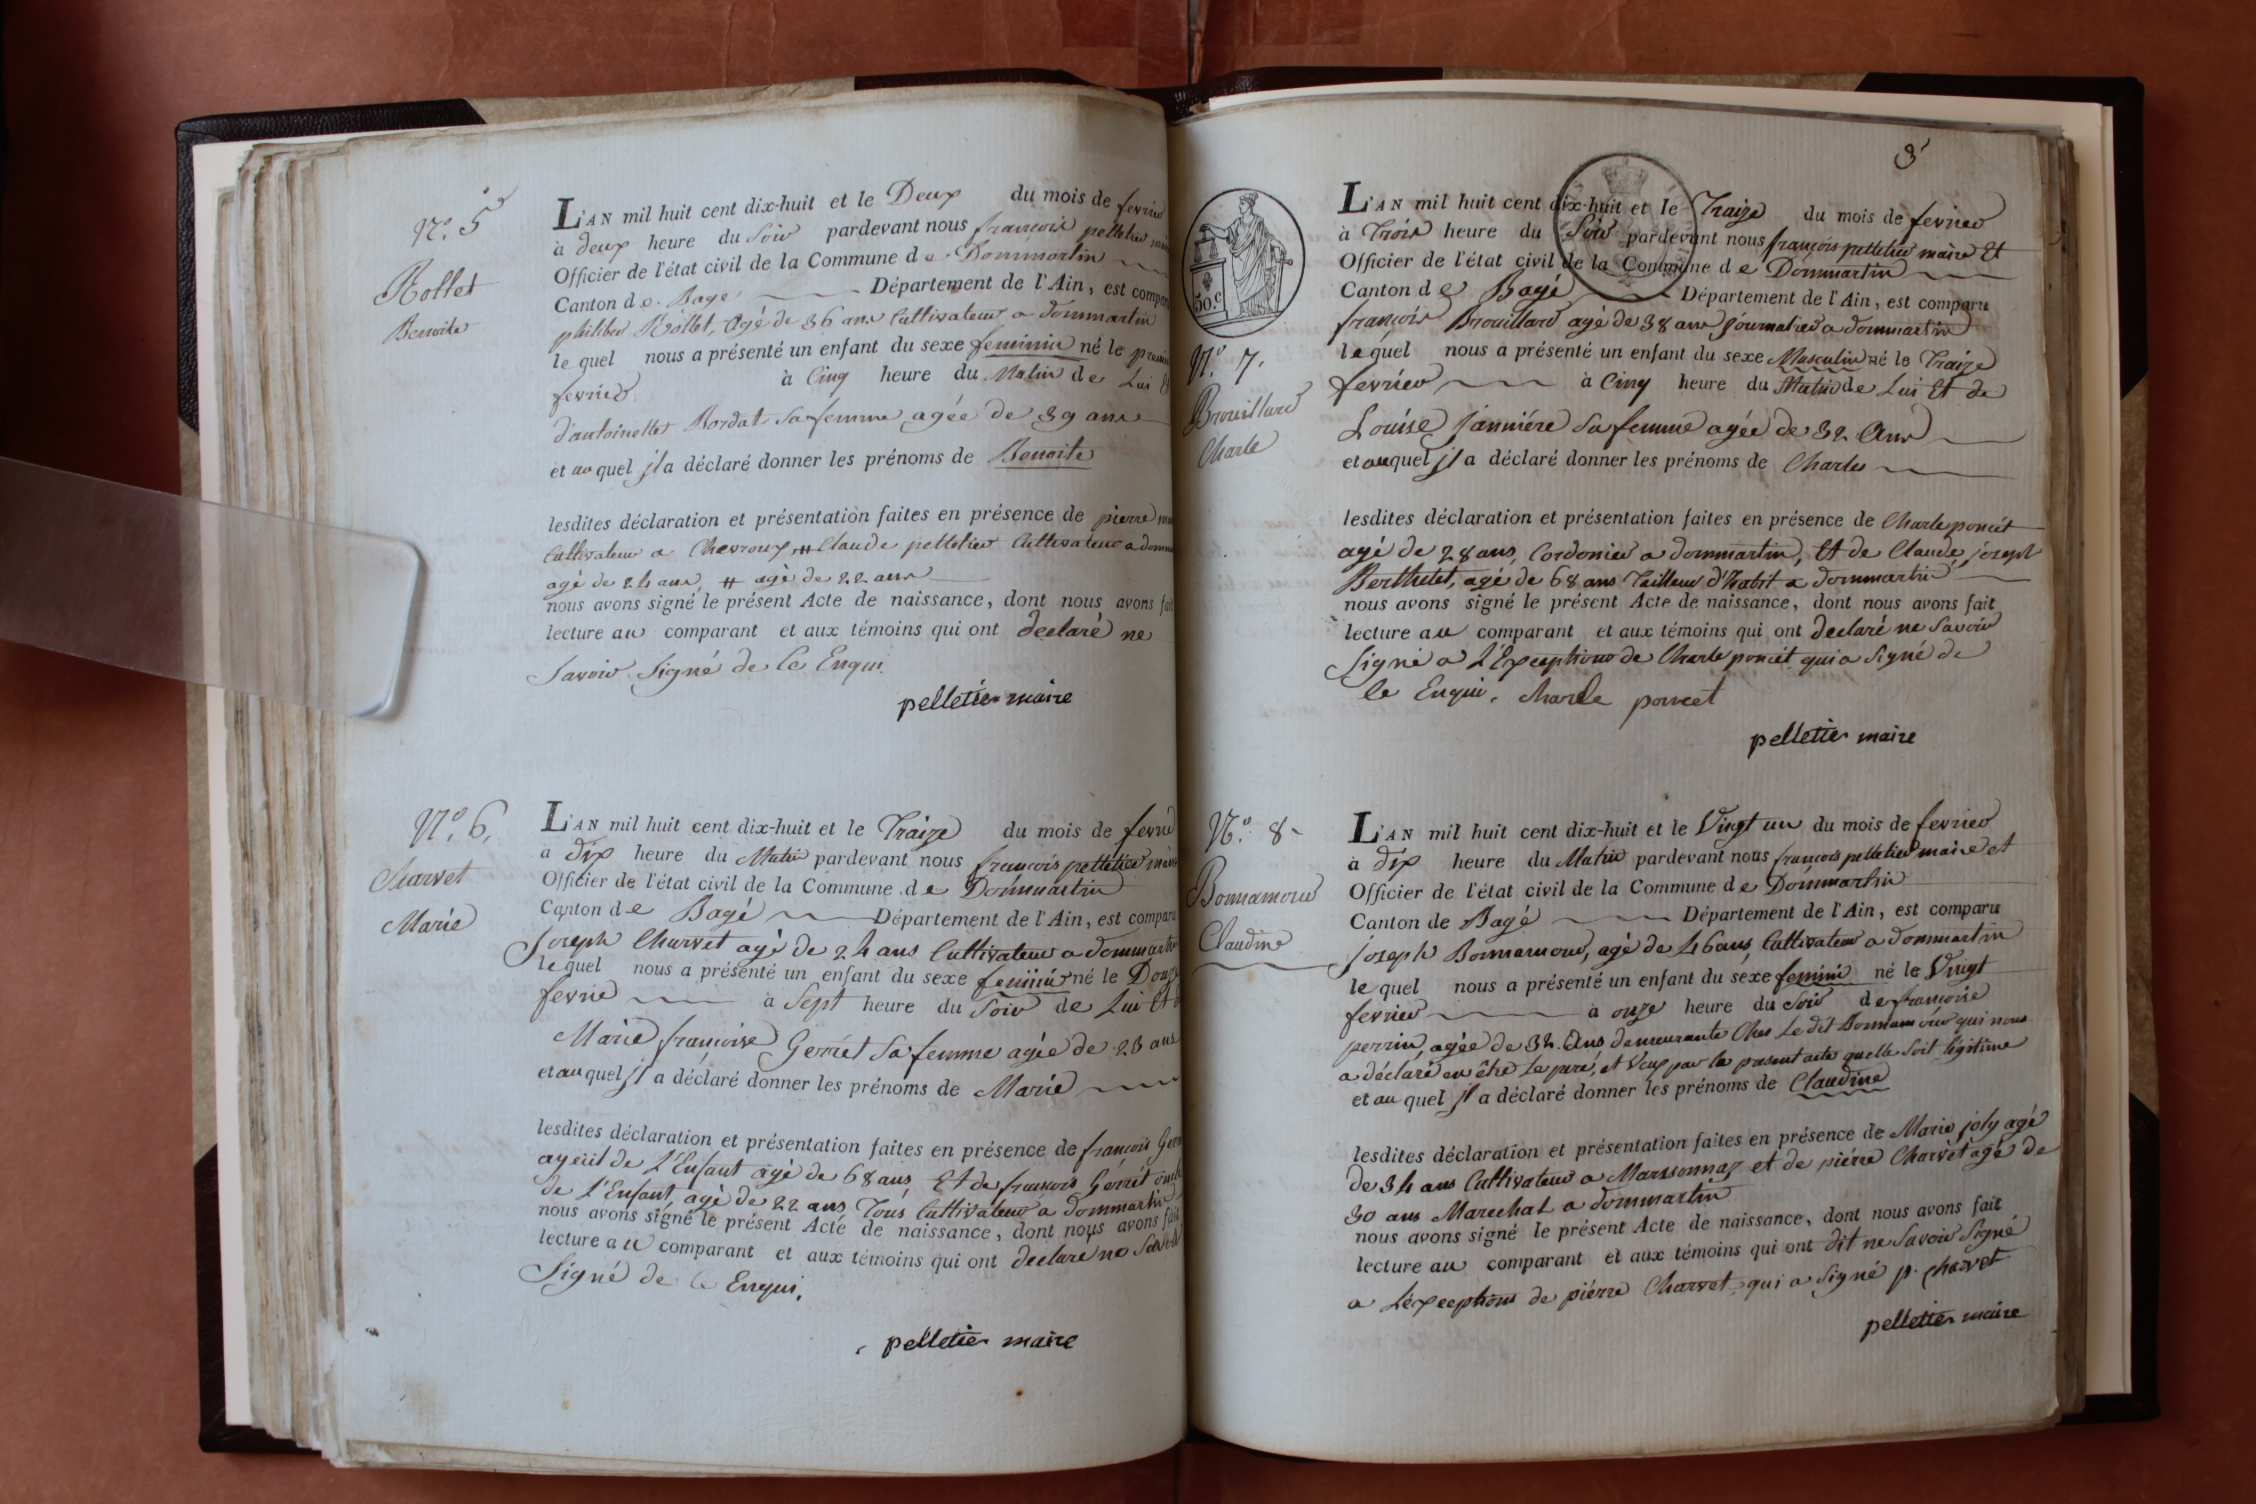 N.° 5
Rollet
Benoite
L'AN mil huit cent dix-huit et le Deux du mois de fevrier
à deux heure du Soir pardevant nous françois pelletier
Officier de l'état civil de la Commune de Dommartin
Canton de Bagé Département de l'Ain, est comparu
philiber Rollet, agé de 36 ans Cultivateur a dommartin
le quel nous a présenté un enfant du sexe feminin né le premier
fevrier à Cinq heure du Matin de Lui Et
d'antoinette Bordat Sa femme agée de 39 ans
et au quel jl a déclaré donner les prénoms de Benoite
lesdites déclaration et présentation faites en présence de pierre
Cultivateur a Chevroux, # Claude pelletier Cultivateur a domm
agé de 24 ans, # agé de 22 ans
nous avons signé le présent Acte de naissance, dont nous avons fait
lecture au comparant et aux témoins qui ont declaré ne
Savoir Signé de Ce Enqui.
pelletier maire
N.° 6.
Charvet
Marie
L'AN mil huit cent dix-huit et le Traize du mois de fevrie
a dix heure du Matin pardevant nous françois pelletier maire
Officier de l'état civil de la Commune de Dommartin
Canton de Bagé Département de l'Ain, est comparu
Joseph Charvet agé de 24 ans Cultivateur a dommartin
le quel nous a présenté un enfant du sexe feminin né le Douze
fevrie à Sept heure du Soir de Lui Et d
Marie françoise Gerriet Sa femme agée de 23 ans
et au quel jl a déclaré donner les prénoms de Marie
lesdites déclaration et présentation faites en présence de françois Gerri
ayeul de L'Enfant agé de 68 ans Et de françois Gerriet oncle
de L'Enfant, agé de 22 ans Tous Cultivateur a dommartin
nous avons signé le présent Acte de naissance, dont nous avons fait
lecture au comparant et aux témoins qui ont declaré ne Savoir
Signé de Ce Enqui.
pelletier maire
3
50.c
N.° 7.
Brouillard
Charle
L'AN mil huit cent dix-huit et le Traize du mois de fevrier
à Trois heure du Soir pardevant nous françois pelletier maire Et
Officier de l'état civil de la Commune de Dommartin
Canton de Bagé Département de l'Ain, est comparu
françois Brouillard agé de 38 ans journalier a dommartin
le quel nous a présenté un enfant du sexe Masculin né le Traize
fevrier à Cinq heure du Matin de Lui Et de
Louise janniére Sa femme agée de 32 Ans
et au quel jl a déclaré donner les prénoms de Charles
lesdites déclaration et présentation faites en présence de Charle poncet
agé de 28 ans, Cordonier a dommartin, Et de Claude joseph
Berthelet, agé de 68 ans Tailleur d'habit a dommartin
nous avons signé le présent Acte de naissance, dont nous avons fait
lecture au comparant et aux témoins qui ont declaré ne Savoir
Signé a L'Exception de Charle poncet qui a Signé de
Ce Enqui. charle poncet
pelletier maire
N.° 8.
Bonnamour
Claudine
L'AN mil huit cent dix-huit et le Vingt un du mois de fevrier
à dix heure du Matin pardevant nous françois pelletier maire et
Officier de l'état civil de la Commune de Dommartin
Canton de Bagé Département de l'Ain, est comparu
joseph Bonnamour, agé de 46 ans, Cultivateur a dommartin
le quel nous a présenté un enfant du sexe feminin né le Vingt
fevrier à onze heure du Soir de françoise
perrin, agée de 32 Ans demeurante Ches Le dit Bonnamour qui nous
a déclaré en être Le pere, et Veux par le present acte quelle Soit légitime
et au quel jl a déclaré donner les prénoms de Claudine
lesdites déclaration et présentation faites en présence de Marie joly agé
de 34 ans Cultivateur a Marssonnaz et de piérre Charvet agé de
30 ans Marechal a dommartin
nous avons signé le présent Acte de naissance, dont nous avons fait
lecture au comparant et aux témoins qui ont dit ne Savoir Signé
a Léxception de piérre Charvet qui a Signé p. charvet
pelletier maire